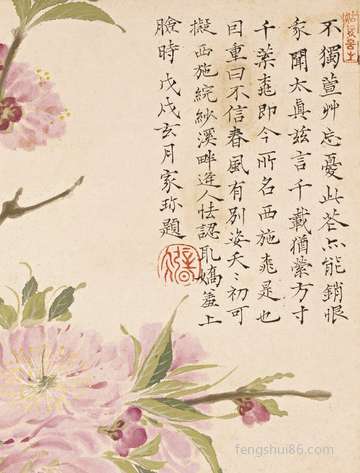 不獨萱艸忘憂此花亦能銷恨
家聞太真茲言千載猶縈方寸
千葉桃即今所名西施桃是也
囙重曰不信春風有別姿夭〻初可
擬西施浣紗溪畔逢人怯認取嬌羞上
臉時戊戌玄月家珍題
fengshui86.com